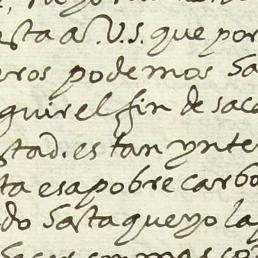 sta a V.S. que por
eros podemos sa
guir el fin de saca
stad. es tan ynte
ta esa pobre carbo
do sasta que yo la